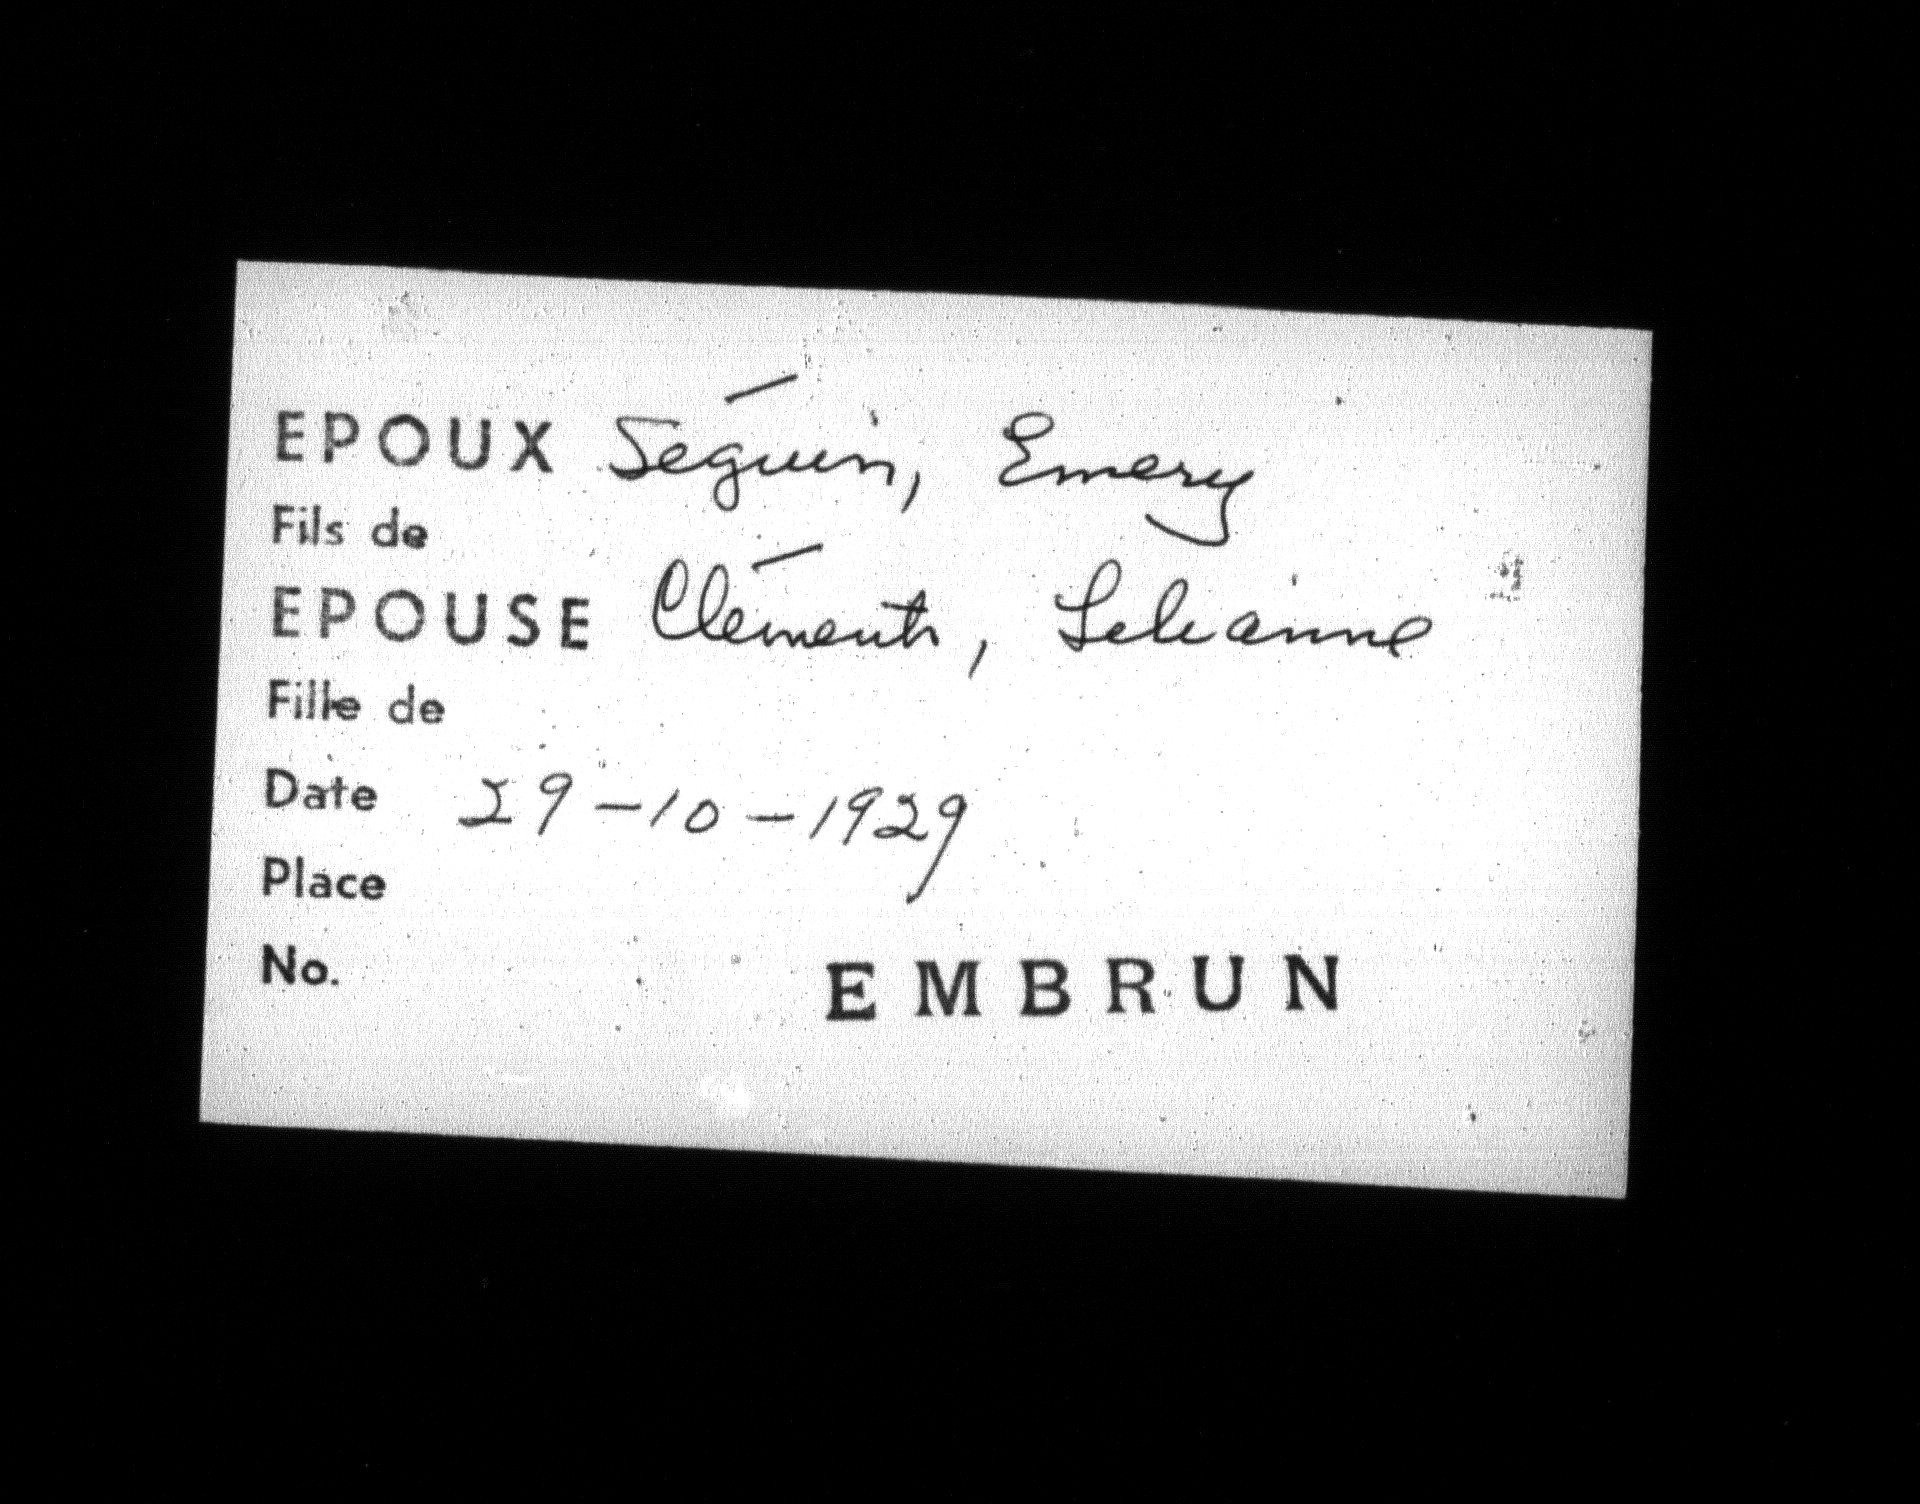 EPOUX Séguin, Emery
Fils de
EPOUSE Clément, Lelianne
Fille de
Date 29-10-1929
Place
No.
EMBRUN